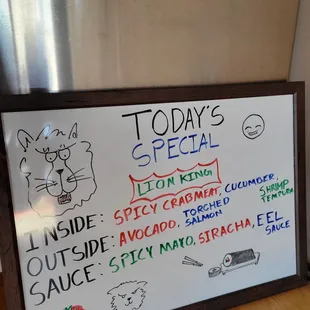 TODAY'S
SPECIAL
LION KING
INSIDE: SPICY CRABMEAT, CUCUMBER, SHRIMP TEMPURA
OUTSIDE: AVOCADO, TORCHED SALMON
SAUCE: SPICY MAYO, SIRACHA, EEL SAUCE